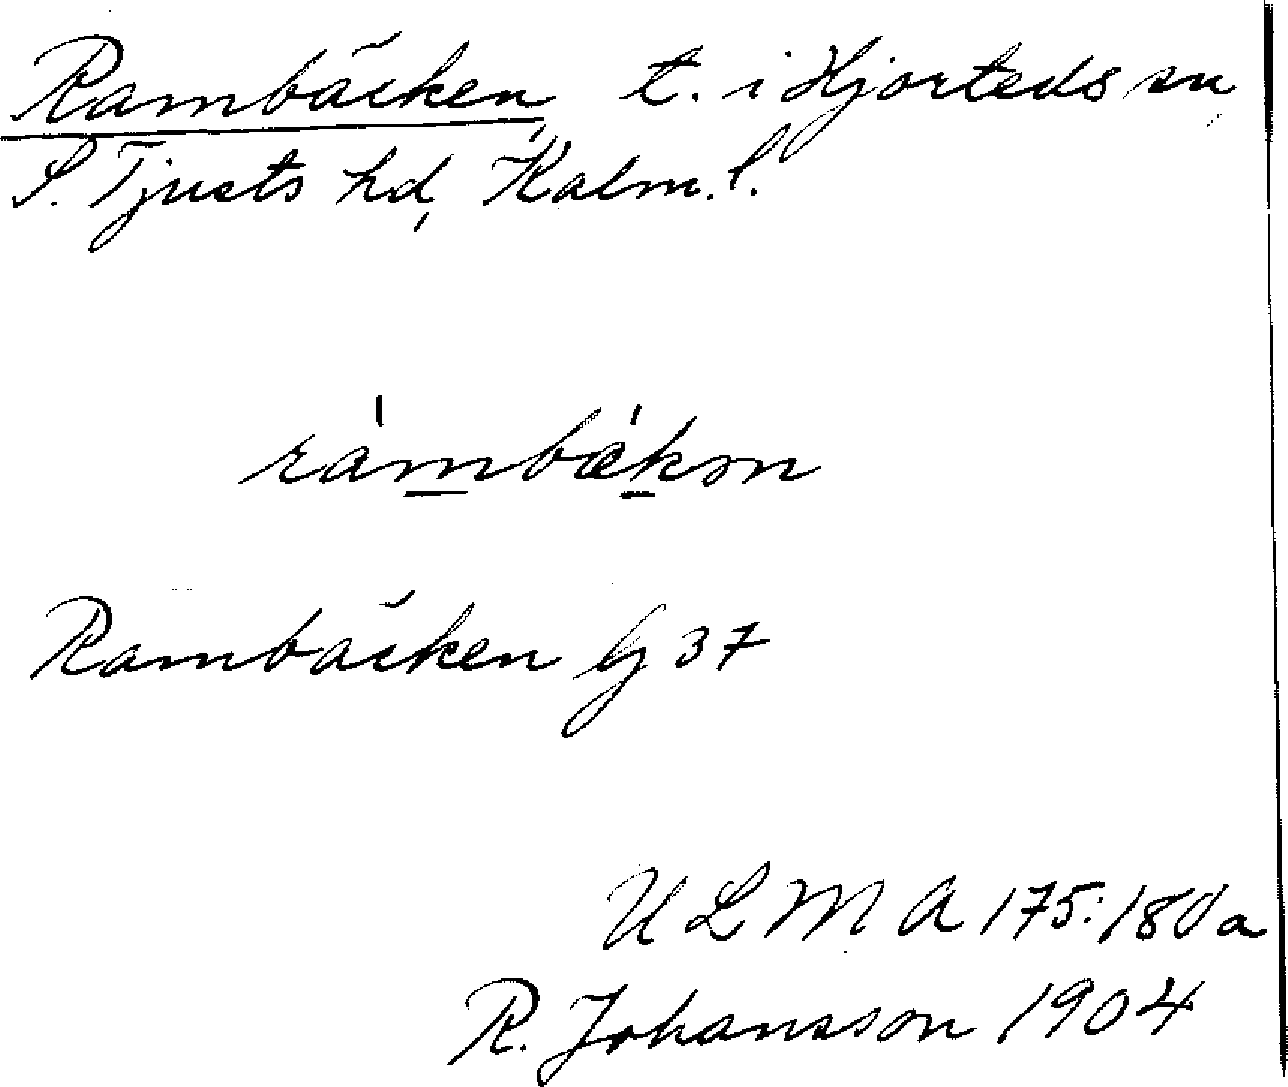 Rambäcken, t. i Hjorteds sn,
S. Tjusts hd, Kalm. l.
ràmbækən
Rambäcken Gj 37
U L M A 175:180a
R. Johansson 1904